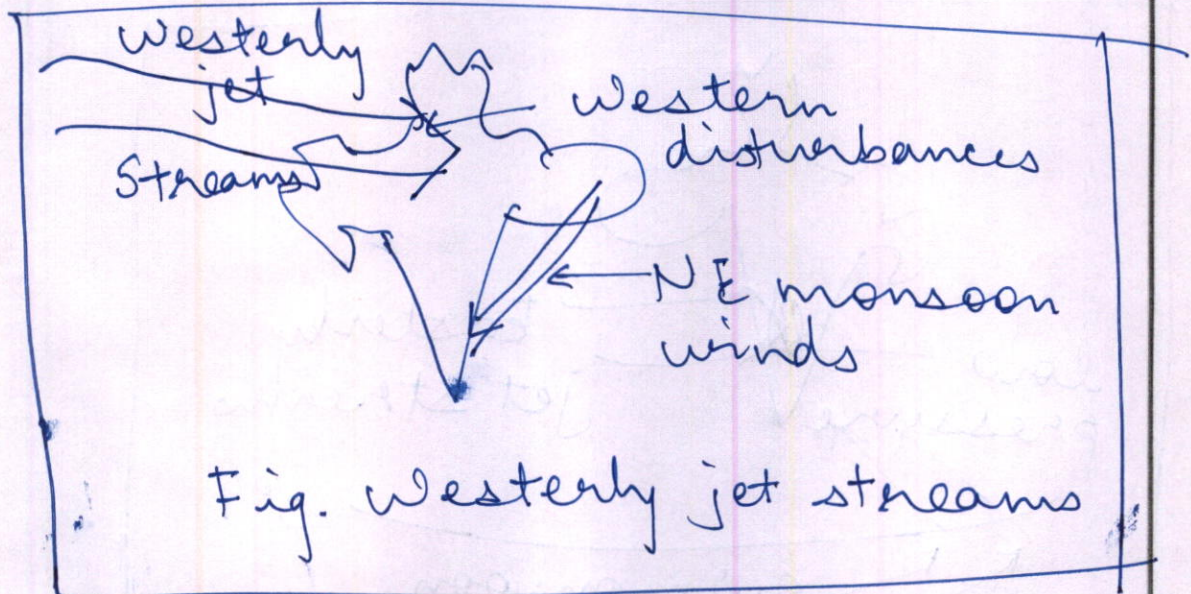 Westerly
jet
Streams
Western
disturbances
NE monsoon
winds
Fig. Westerly jet streams